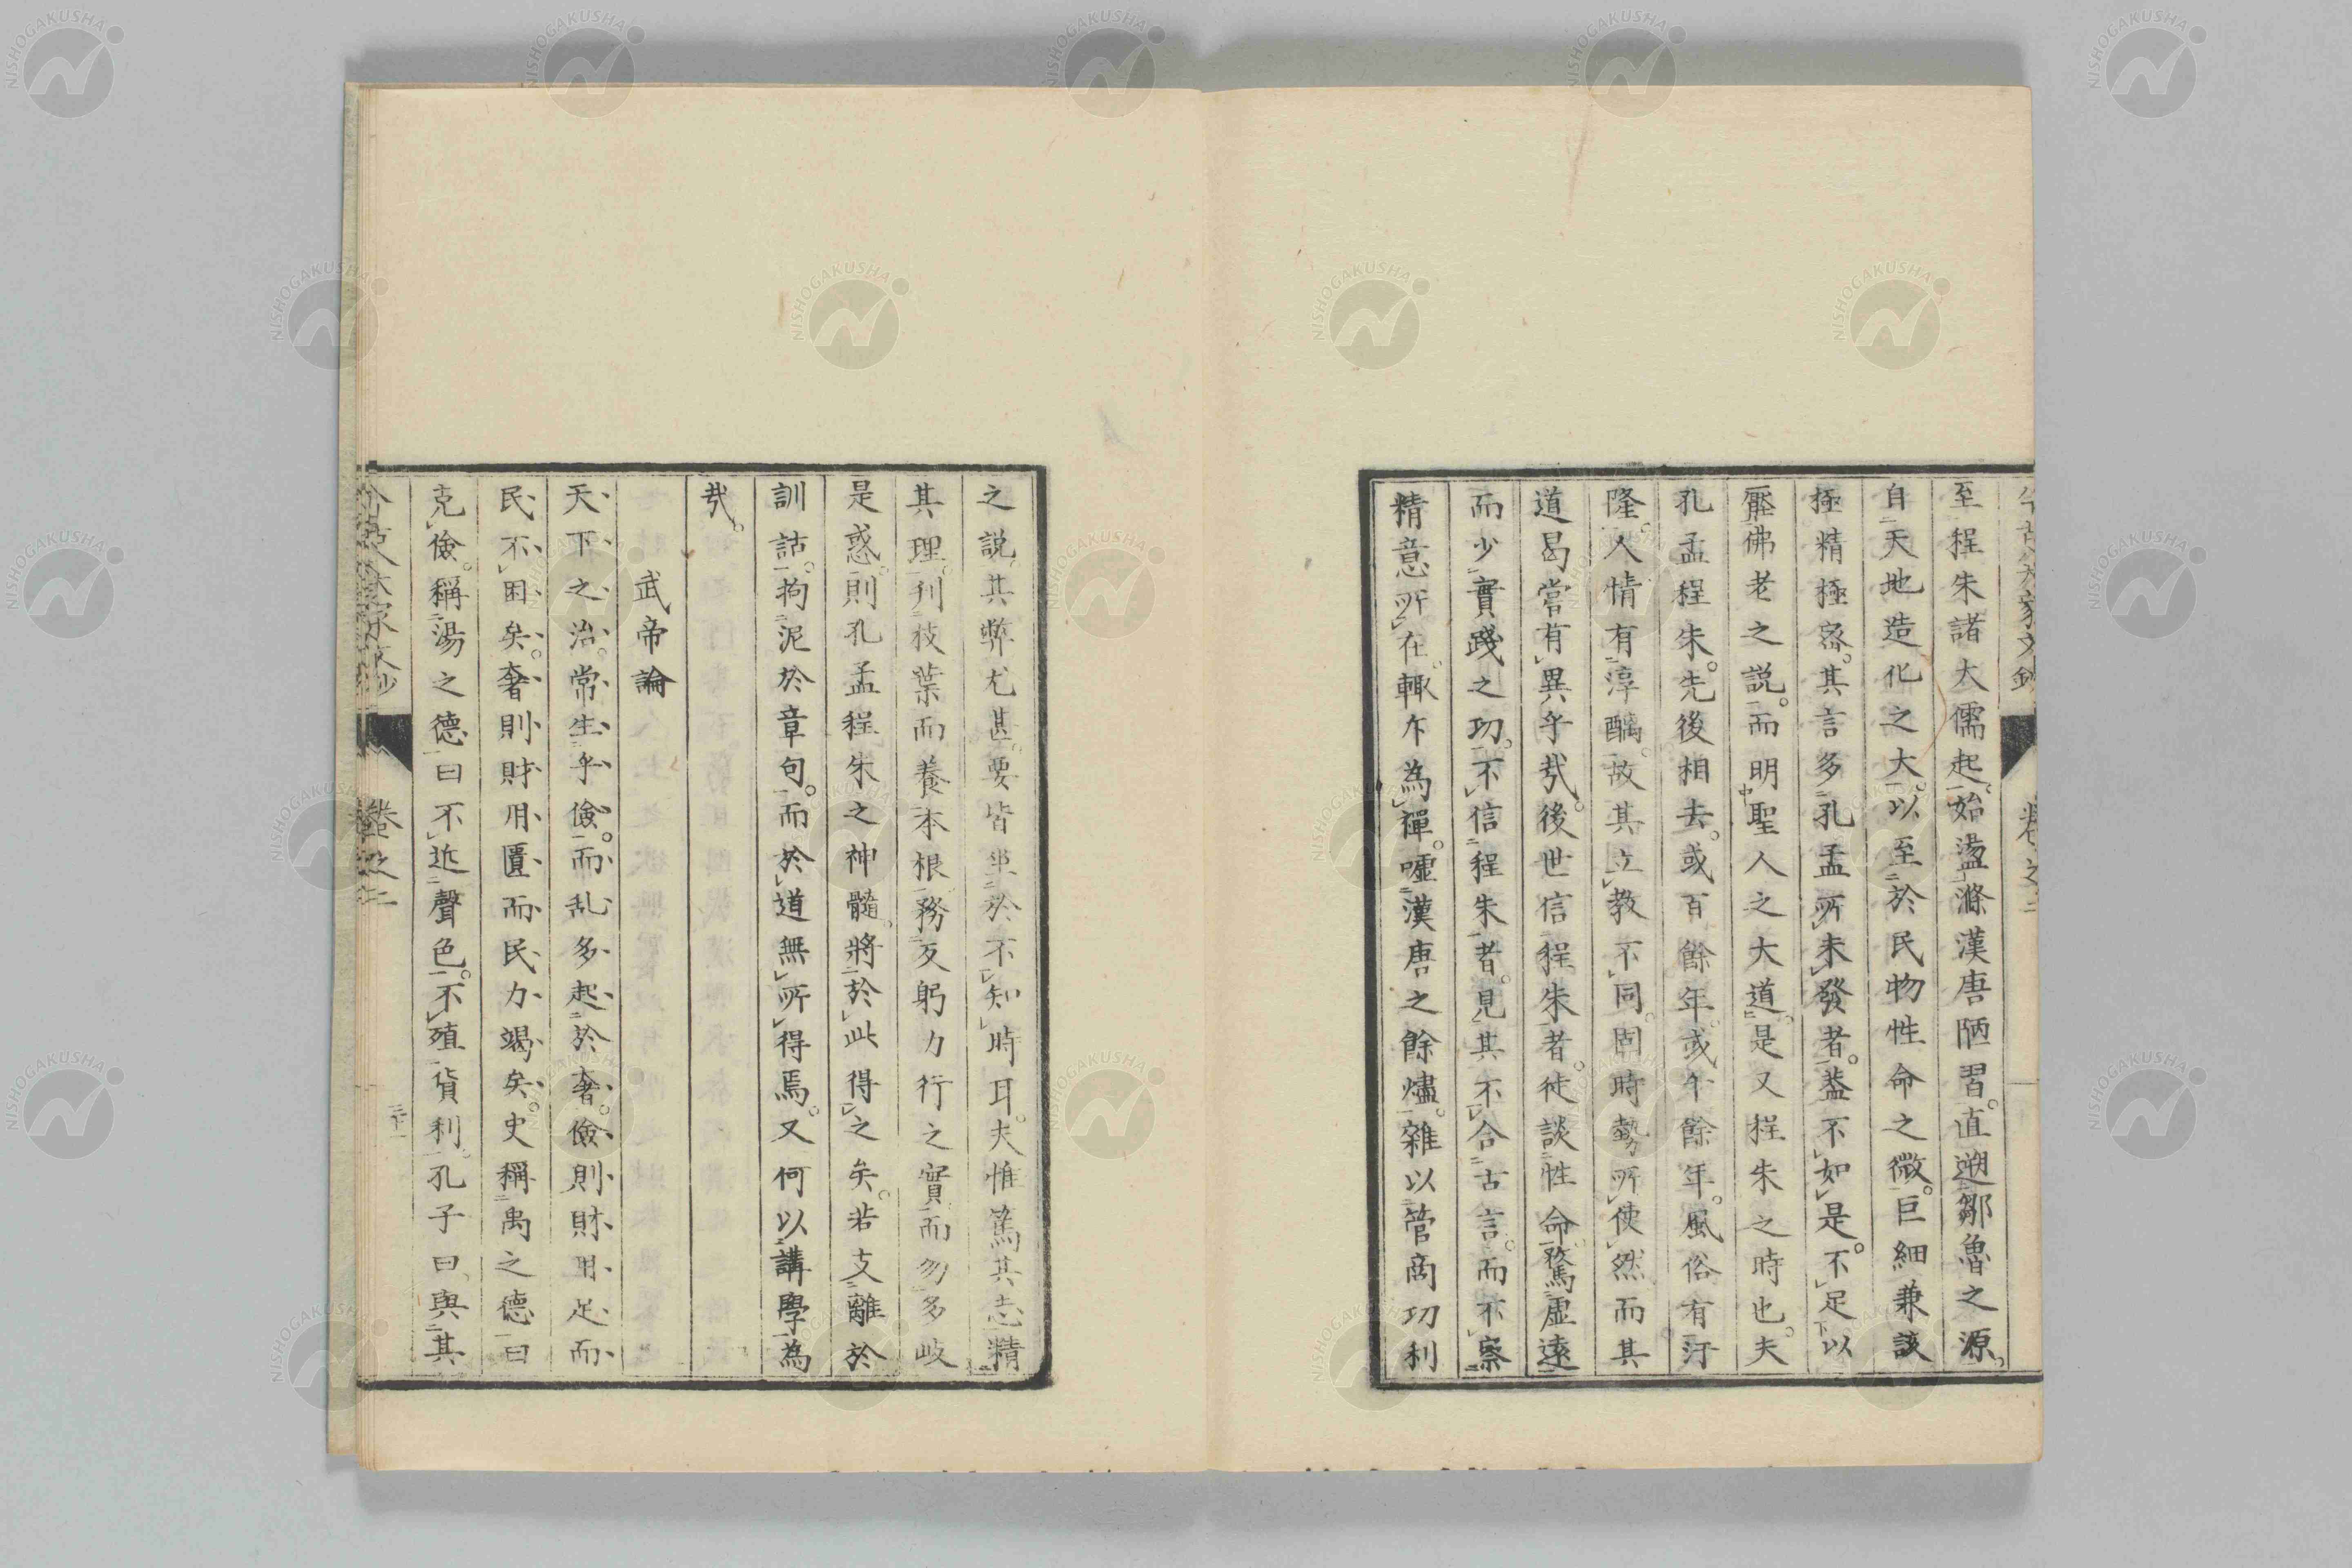 至程朱諸大儒起。始盪滌漢唐陋習。直遡鄒魯之源。
自天地造化之大。以至於民物性命之微。巨細兼該
極精極密。其言多孔孟所未發者。葢不如是。不足以
壓佛老之説。而明聖人之大道。是又程朱之時也。夫
孔孟程朱。先後相去。或百餘年。或千餘年。風俗有汙
隆。人情有淳醨。故其立教不同。固時勢所使然而其
道曷嘗有異乎㢤。後世信程朱者。徒談性命。騖虚遠
而少實踐之功。不信程朱者。見其不合古言。而不察
精意所在。輙斥為禪。嘘漢唐之餘燼。雜以管商功利
之説。其弊尤甚。要皆坐於不知時耳。夫惟篤其志精
其理。刋枝葉而養本根。務反躬力行之實。而勿多岐
是惑。則孔孟程朱之神髓。將於此得之矣。若支離於
訓詁。拘泥於章句。而於道無所得焉。又何以講學為
㢤。
武帝論
天下之治。常生乎儉。而乱多起於奢。儉則財用足而
民不困矣。奢則財用匱而民力竭矣。史稱禹之德曰
克儉。稱湯之德曰不近聲色。不殖貨利。孔子曰、與其
卷之二
三十一
NISHOGAKUSHA